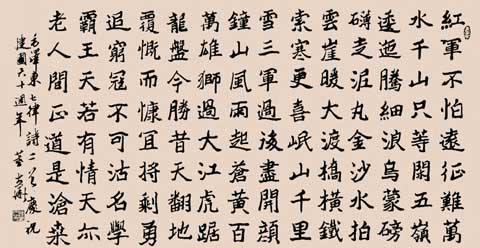 紅軍不怕遠征難萬
水千山只等閑五嶺
逶迤騰細浪烏蒙磅
礴走泥丸金沙水拍
雲崖暖大渡橋橫鐵
索寒更喜岷山千里
雪三軍過後盡開顏
鐘山風雨起蒼黃百
萬雄獅過大江虎踞
龍盤今勝昔天翻地
覆慨而慷宜將剩勇
追窮寇不可沽名學
霸王天若有情天亦
老人間正道是滄桑
毛澤東七律詩二首慶祝
建國六十週年